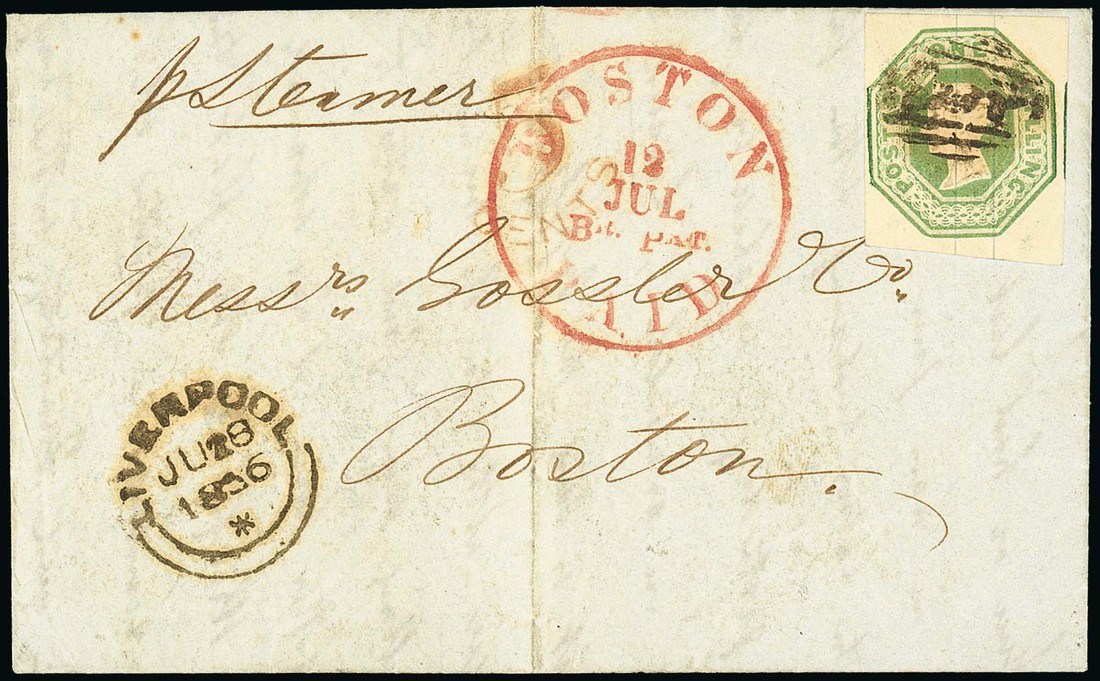 p Steamer
BOSTON
12
JUL
Br. PKT.
PAID
POSTAGE ONE SHILLING
CENTS
Messrs Gossler & Co.
Boston.
LIVERPOOL
JU 28
1856
*